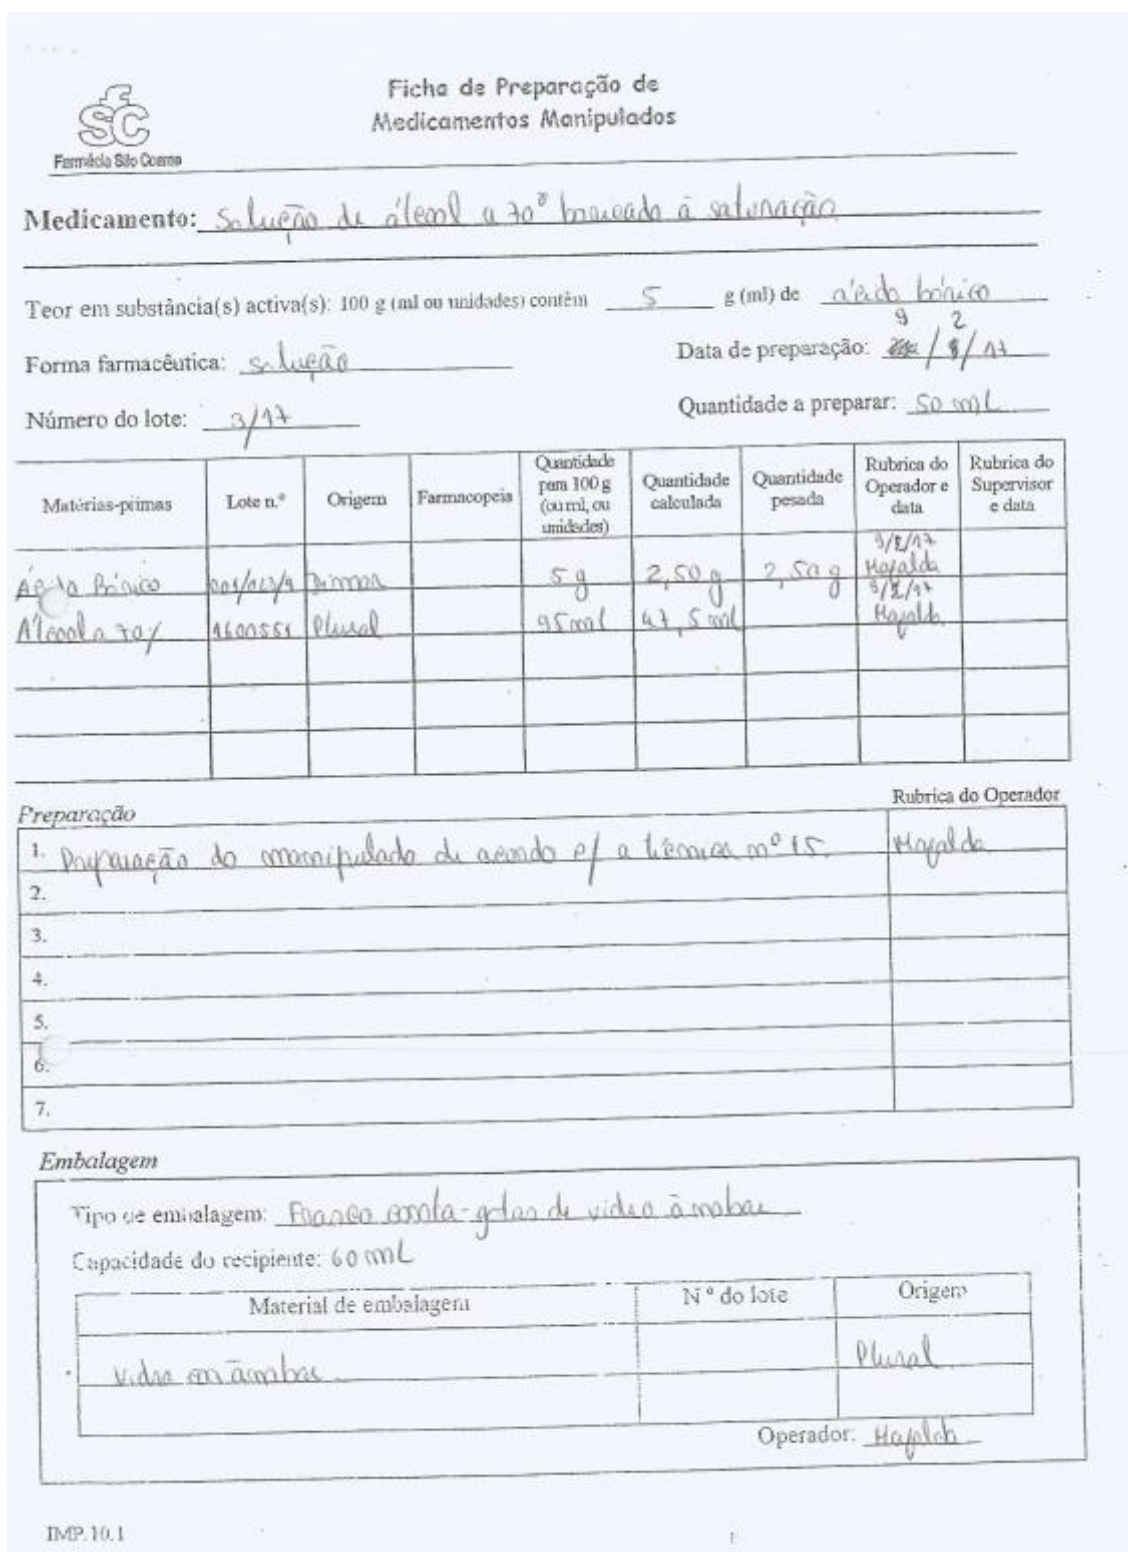 Ficha de Preparação de
Medicamentos Manipulados
fsc
Farmácia São Cosme
Medicamento: Solução de álcool a 70º boricado à saturação
Teor em substância(s) activa(s): 100 g (ml ou unidades) contêm 5 g (ml) de ácido bórico
Forma farmacêutica: solução
Data de preparação: 9/2/17
Número do lote: 3/17
Quantidade a preparar: 50 mL
Matérias-primas Lote n.º Origem Farmacopeia Quantidade para 100 g (ou ml, ou unidades) Quantidade calculada Quantidade pesada Rubrica do Operador e data Rubrica do Supervisor e data
Ácido Bórico 5 g 2,50 g 2,50 g 9/2/17 Mafalda
Álcool a 70% 1600551 Plural 95ml 47,5 ml 9/2/17 Mafalda
Preparação
Rubrica do Operador
1. Preparação do manipulado de acordo c/ a técnica nº 15. Mafalda
2.
3.
4.
5.
6.
7.
Embalagem
Tipo de embalagem: Frasco conta-gotas de vidro âmbar
Capacidade do recipiente: 60 mL
Material de embalagem N º do lote Origem
Vidro em âmbar Plural
Operador: Mafalda
IMP.10.1